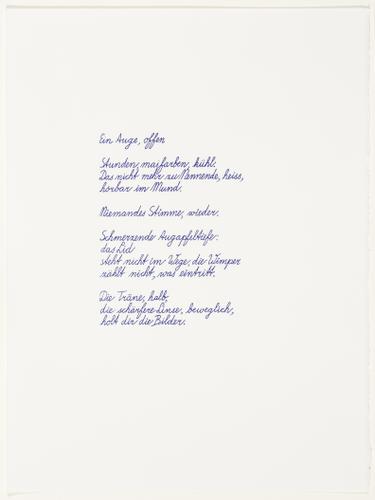 Ein Auge, offen
Stunden, maifarben, kühl.
Das nicht mehr zu Nennende, heiss,
hörbar im Mund.
Niemandes Stimme, wieder.
Schmerzende Augapfeltiefe:
das Lid
steht nicht im Wege, die Wimper
zählt nicht, was eintritt.
Die Träne, halb,
die schärfere Linse, beweglich,
holt dir die Bilder.